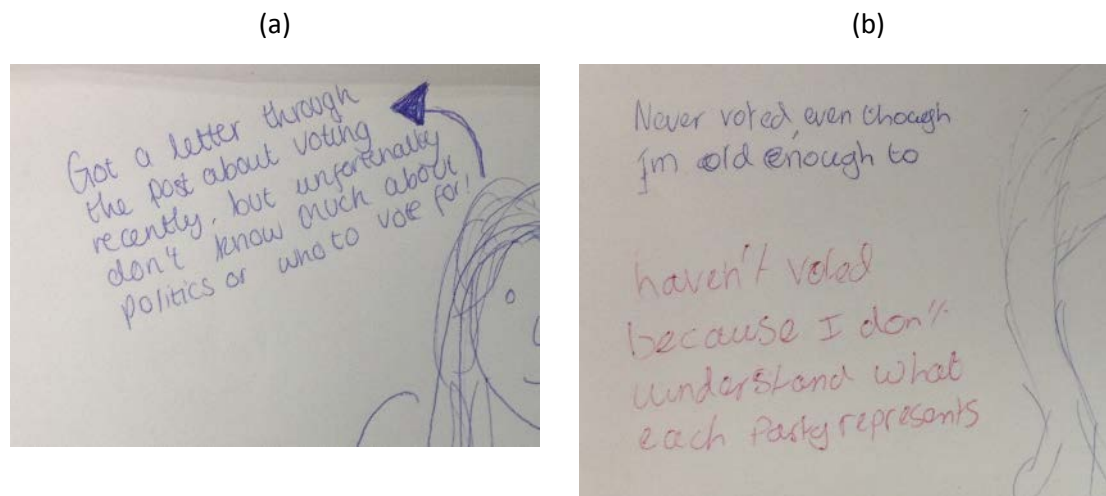 (a)
Got a letter through
the post about voting
recently, but unfortenalty
don't know much about
politics or who to vote for!
(b)
Never voted, even though
I'm old enough to
haven't voted
because I don't
understand what
each Party represents